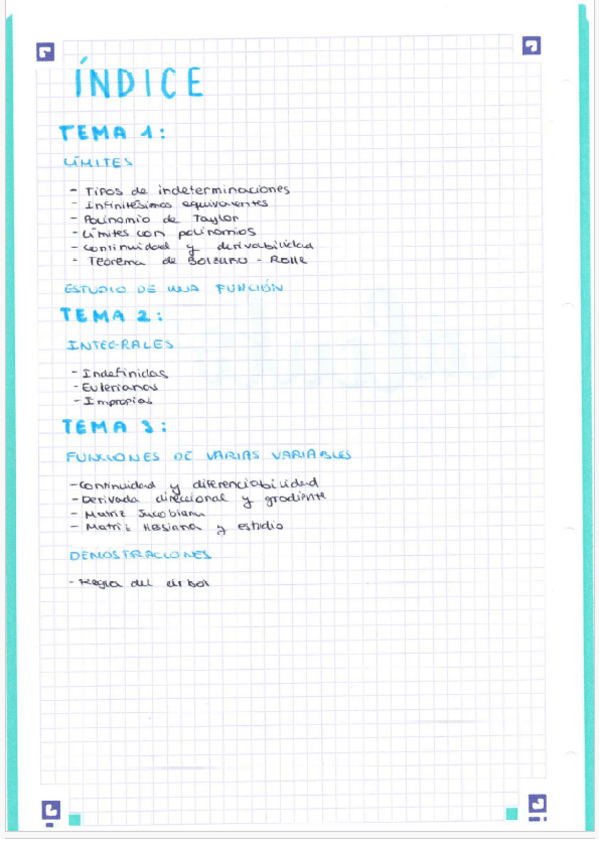 ÍNDICE
TEMA 1:
LÍMITES
- Tipos de indeterminaciones
- Infinitésimos equivalentes
- Polinomio de Taylor
- Límites con polinomios
- Continuidad y derivabilidad
- Teorema de Bolzano - Rolle
ESTUDIO DE UNA FUNCIÓN
TEMA 2:
INTEGRALES
- Indefinidas
- Eulerianas
- Impropias
TEMA 3:
FUNCIONES DE VARIAS VARIABLES
- Continuidad y diferenciabilidad
- Derivada direccional y gradiente
- Matriz Jacobiana
- Matriz Hessiana y estudio
DEMOSTRACIONES
- Regla del árbol